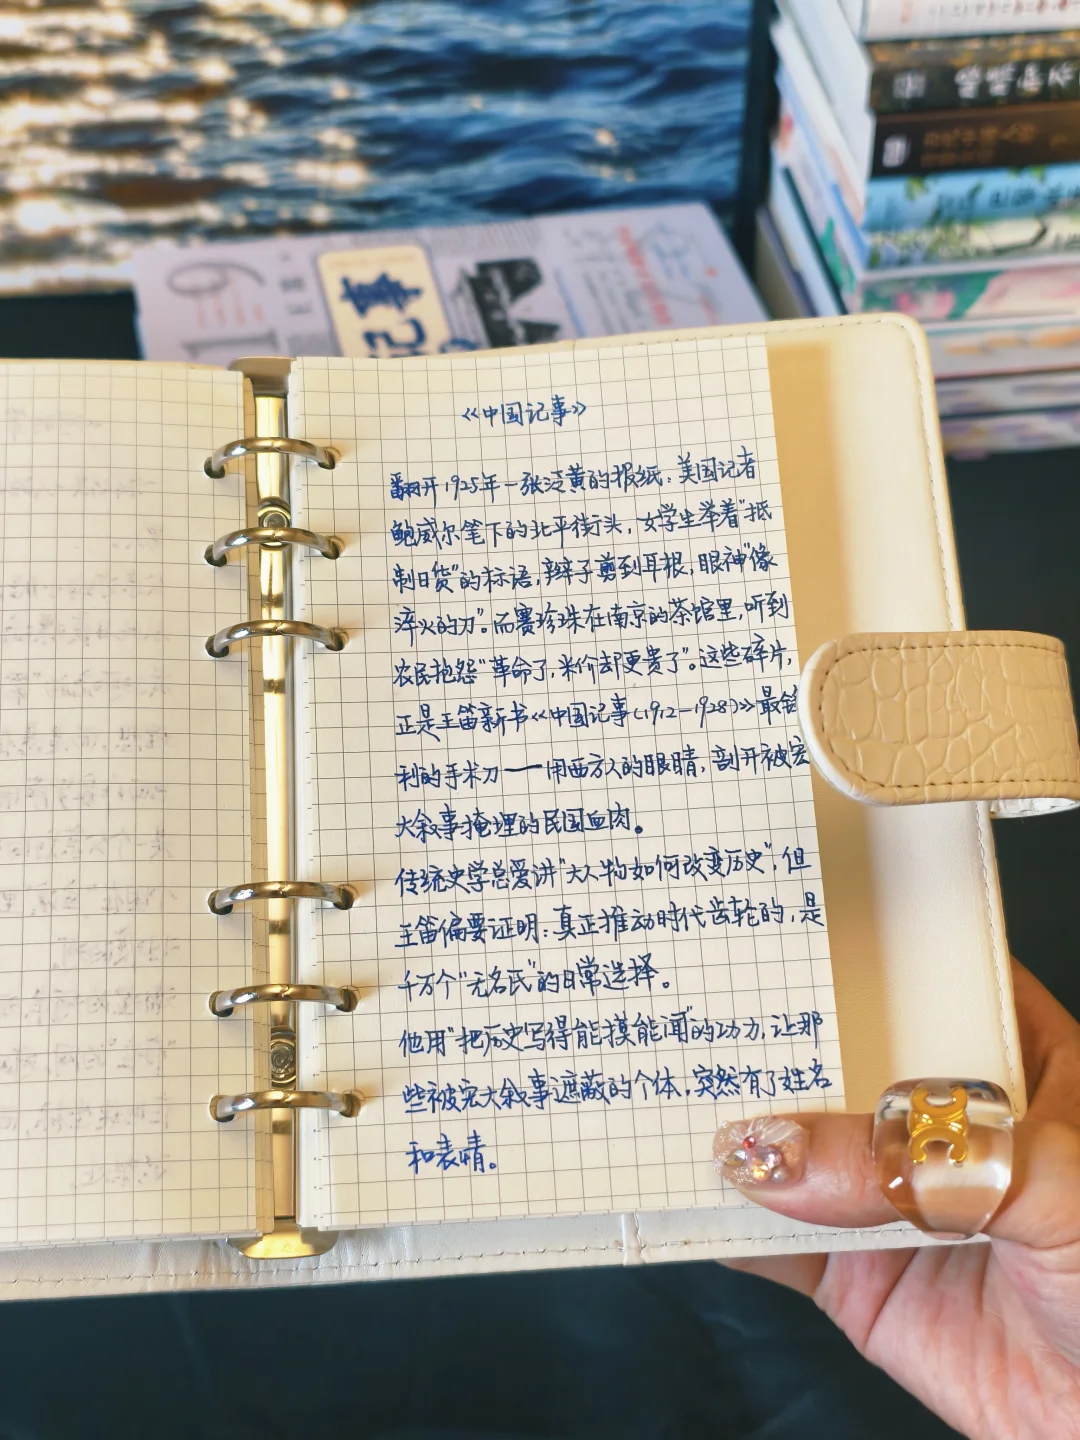 《中国记事》
翻开1925年一张泛黄的报纙：美国记者
鲍威尔笔下的北平街头，女学生举着“抵
制日货”的标语，辫子剪到耳根，眼神“像
淬火的刀”。而赛珍珠在南京的茶馆里，听到
农民抱怨“革命了，米价却更贵了”。这些碎片，
正是王笛新书《中国记事（1912—1928）》最锋
利的手术刀——用西方人的眼睛，剖开被宏
大叙事掩埋的民国血肉。
传统史学总爱讲“大人物如何改变历史”，但
王笛偏要证明：真正推动时代齿轮的，是
千万个“无名氏”的日常选择。
他用“把历史写得能摸能闻”的功力，让那
些被宏大叙事遮蔽的个体，突然有了姓名
和表情。
记事